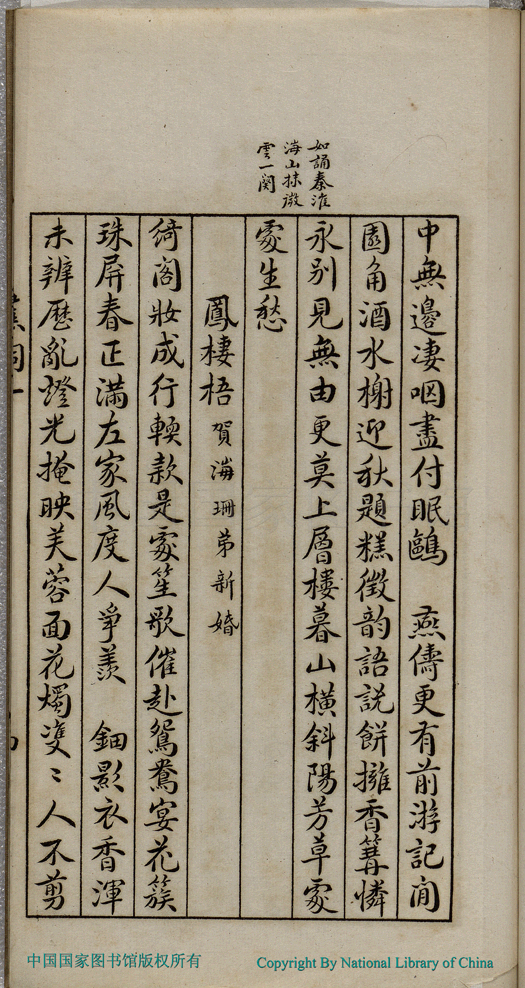 如誦秦淮
海山抹微
雲一闋
中無邊凄咽盡付眠鷗　燕儔更有前游記閙
園角酒水榭迎秋題糕徵韵語説餅擁香篝憐
永別見無由更莫上層樓暮山橫斜陽芳草處
處生愁
鳳棲梧賀海珊弟新婚
綺閣妝成行輭款是處笙歌催赴鴛鴦宴花簇
珠屏春正滿左家風度人爭羨　鈿影衣香渾
未辨歷亂燈光掩映芙蓉面花燭雙〻人不剪
中国国家图书馆版权所有
Copyright By National Library of China